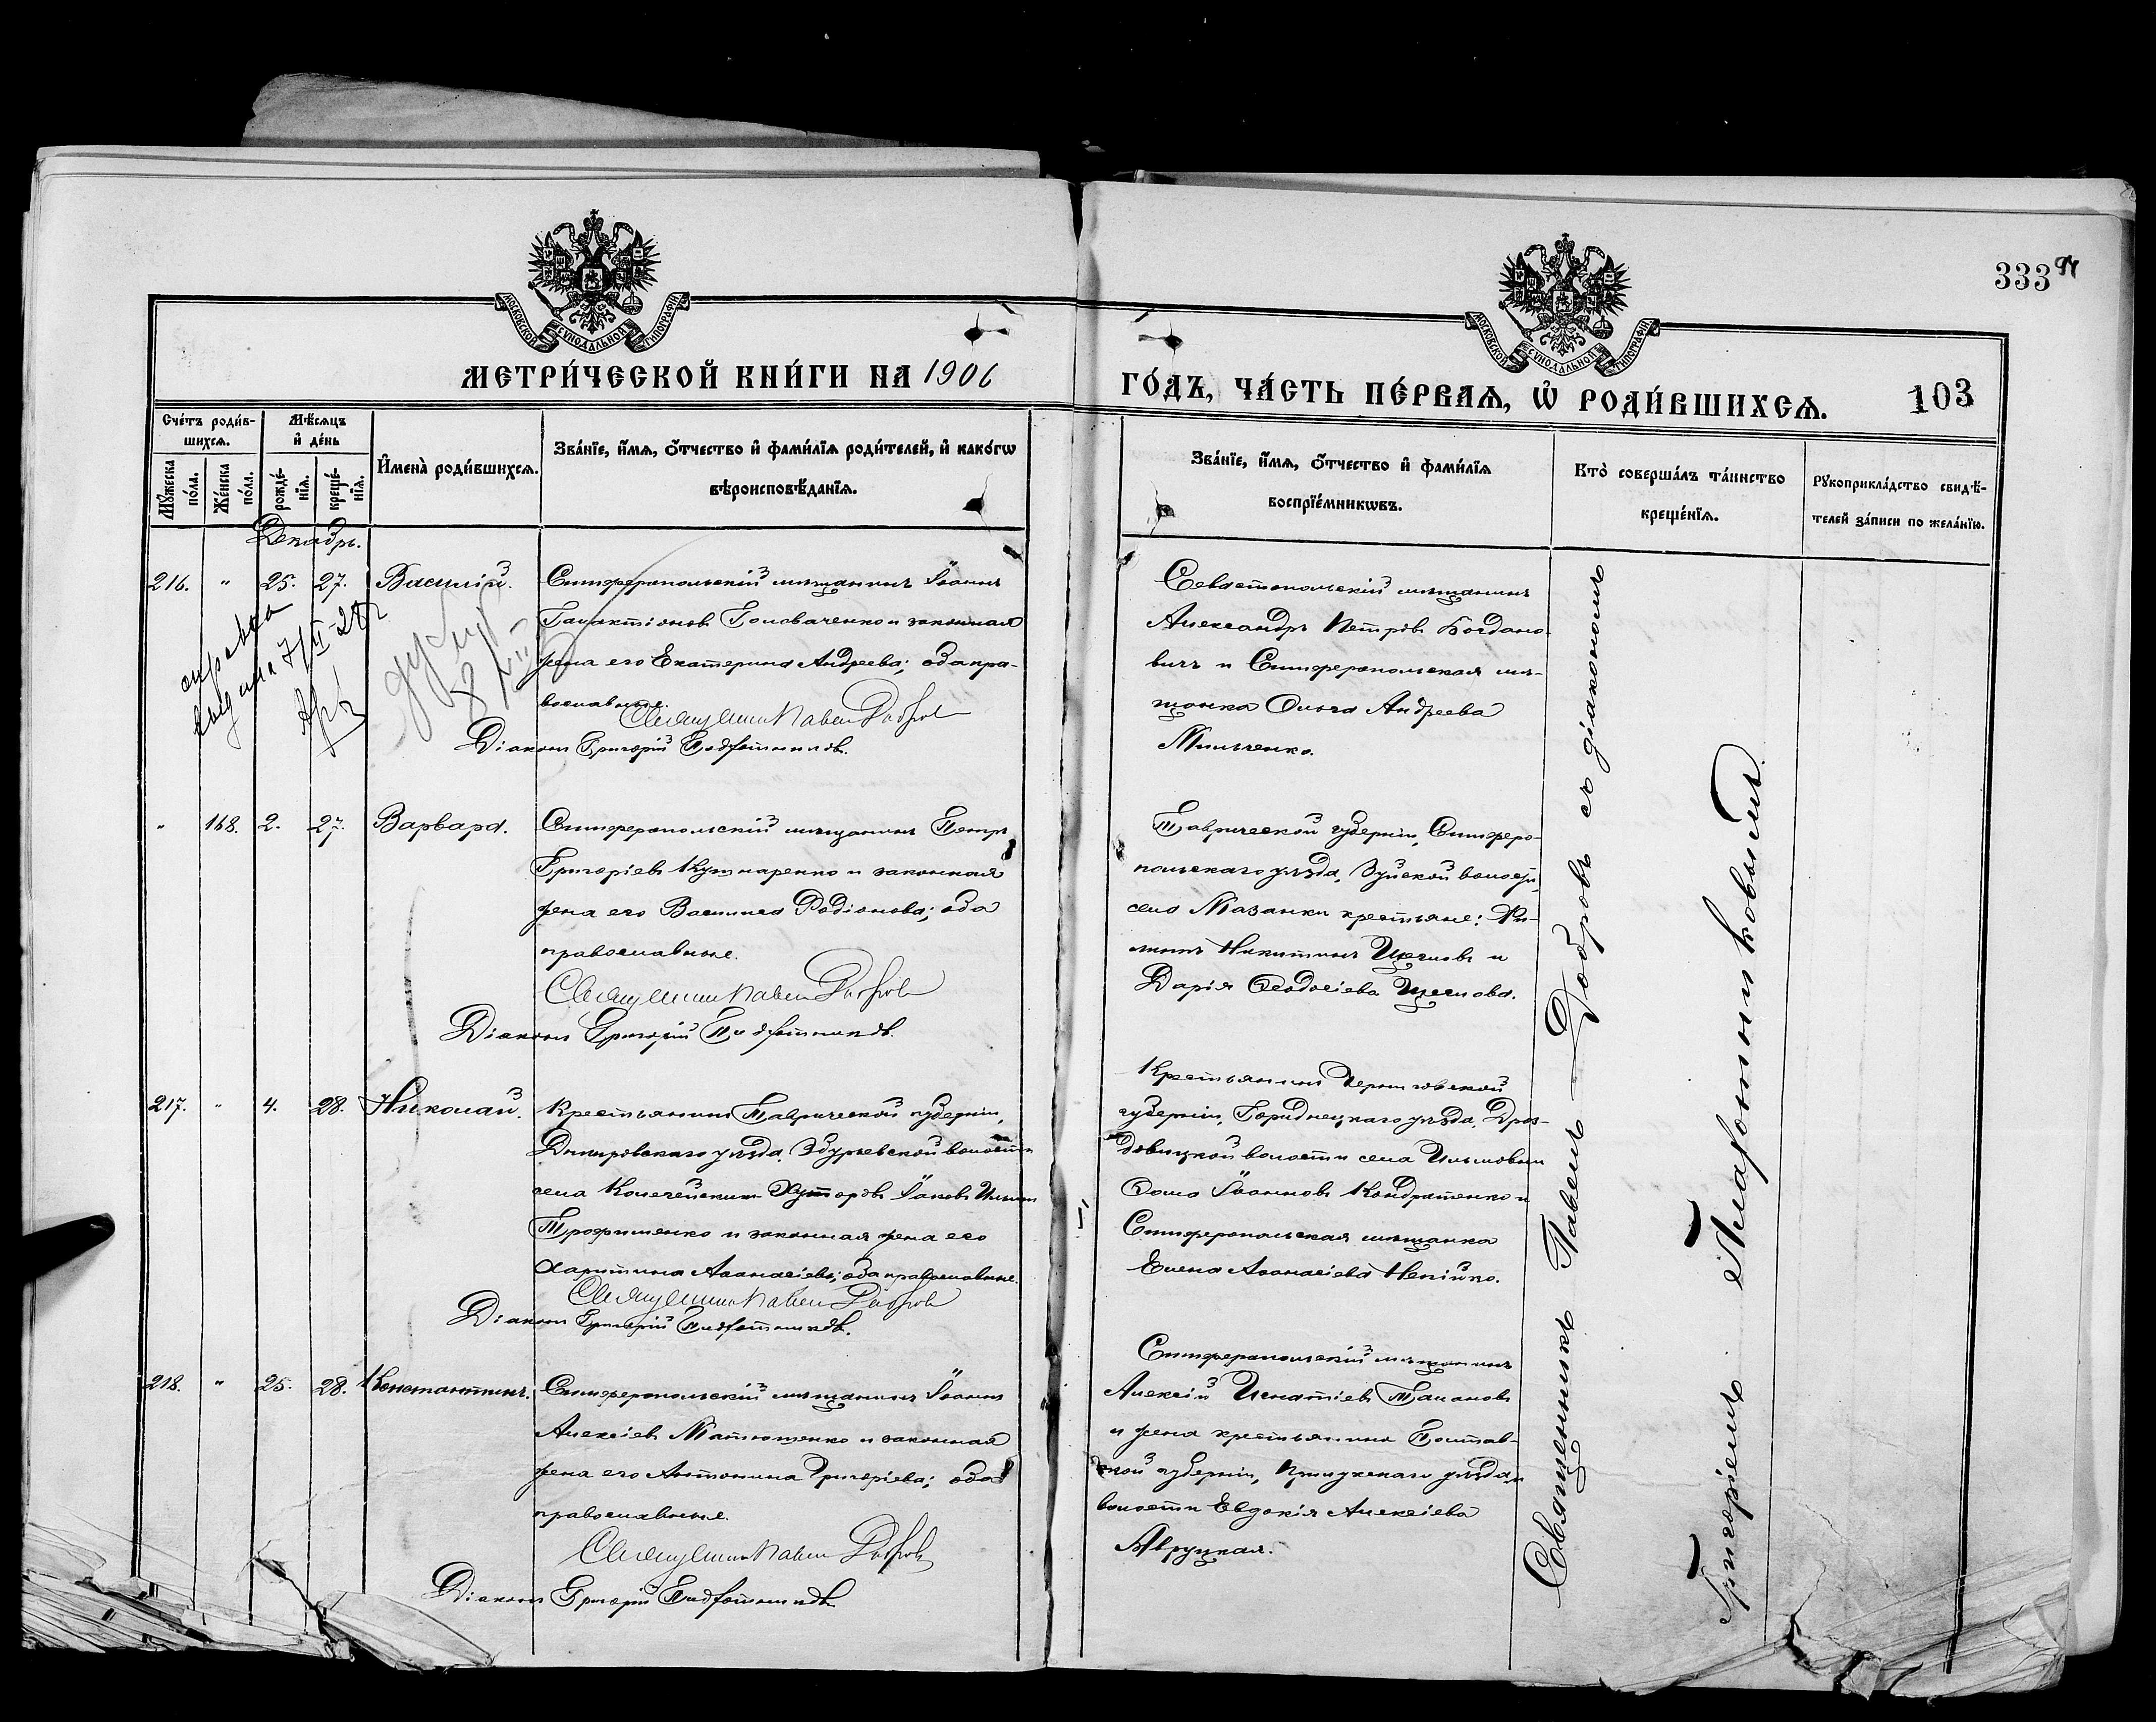 333 94
МОСКОВСКОЙ СѴНОДАЛЬНОЙ ТИПОГРАФІИ
МОСКОВСКОЙ СѴНОДАЛЬНОЙ ТИПОГРАФІИ
МЕТРИ́ЧЕСКОЙ КНИ́ГИ НА 1906
ГО́ДЪ, ЧА́СТЬ ПЕ́РВАѦ, Ѡ҆ РОДИ́ВШИХСѦ.
103
Сче́тъ роди́в-
шихсѧ.
Мꙋ́жеска по́ла.
Же́нска по́ла.
Мѣ́сѧцъ
и҆ де́нь
рожде́-
нїѧ.
креще́-
нїѧ.
И҆мена̀ роди́вшихсѧ.
Зва́нїе, и҆́мѧ, ѻ҆́тчество и҆ фами́лїѧ роди́телей, и҆ како́гѡ
вѣроисповѣ́данїѧ.
Зва́нїе, и҆́мѧ, ѻ҆́тчество и҆ фами́лїѧ
воспрїе́мникѡвъ.
Кто̀ соверша́лъ та́инство
креще́нїѧ.
Рꙋкоприкла́дство свидѣ́-
телей за́писи по жела́нїю.
Декабрь.
216. " 25. 27. Василій.
Симферопольскій мѣщанинъ Іоаннъ
Галактіоновъ Головаченко и законная
жена его Екатерина Андреева; оба пра-
вославные.
Священникъ Павелъ Добровъ
Діаконъ Григорій
справка
выдана
Севастопольскій мѣщанинъ
Александръ Петровъ Богдано-
вичъ и Симферопольская мѣ-
щанка Ольга Андреева
Мильченко.
" 168. 2. 27. Варвара.
Симферопольскій мѣщанинъ Петръ
Григоріевъ Кушнаренко и законная
жена его Васса Родіонова; оба
православные.
Священникъ Павелъ Добровъ
Діаконъ Григорій
Таврической губерніи, Симферо-
польскаго уѣзда, Зуйской волости,
села Мазанки крестьяне: Фи-
липпъ Никитинъ Щегловъ и
Дарія Ѳеодосіева Щеглова.
217. " 4. 28. Николай.
Крестьянинъ Таврической губерніи,
Днѣпровскаго уѣзда, Збурьевской волости
села Хуторовъ Іаковъ
Трофименко и законная жена его
Харитина Аѳанасіева; оба православные.
Священникъ Павелъ Добровъ
Діаконъ Григорій
Крестьянинъ Черниговской
губерніи, Городнецкаго уѣзда, Дроз-
довицкой волости села
Ѳома Іоанновъ Кондратенко и
Симферопольская мѣщанка
Елена Аѳанасіева
218. " 25. 28. Константинъ.
Симферопольскій мѣщанинъ Іоаннъ
Алексіевъ Матюшенко и законная
жена его Антонина Григоріева; оба
православные.
Священникъ Павелъ Добровъ
Діаконъ Григорій
Симферопольскій мѣщанинъ
Алексій Игнатіевъ Тапановъ
и жена крестьянина Полтав-
ской губерніи, Прилукскаго уѣзда и
волости Евдокія Алексіева
Яв руцкая.
Священникъ Павелъ Добровъ съ діакономъ
Григоріемъ